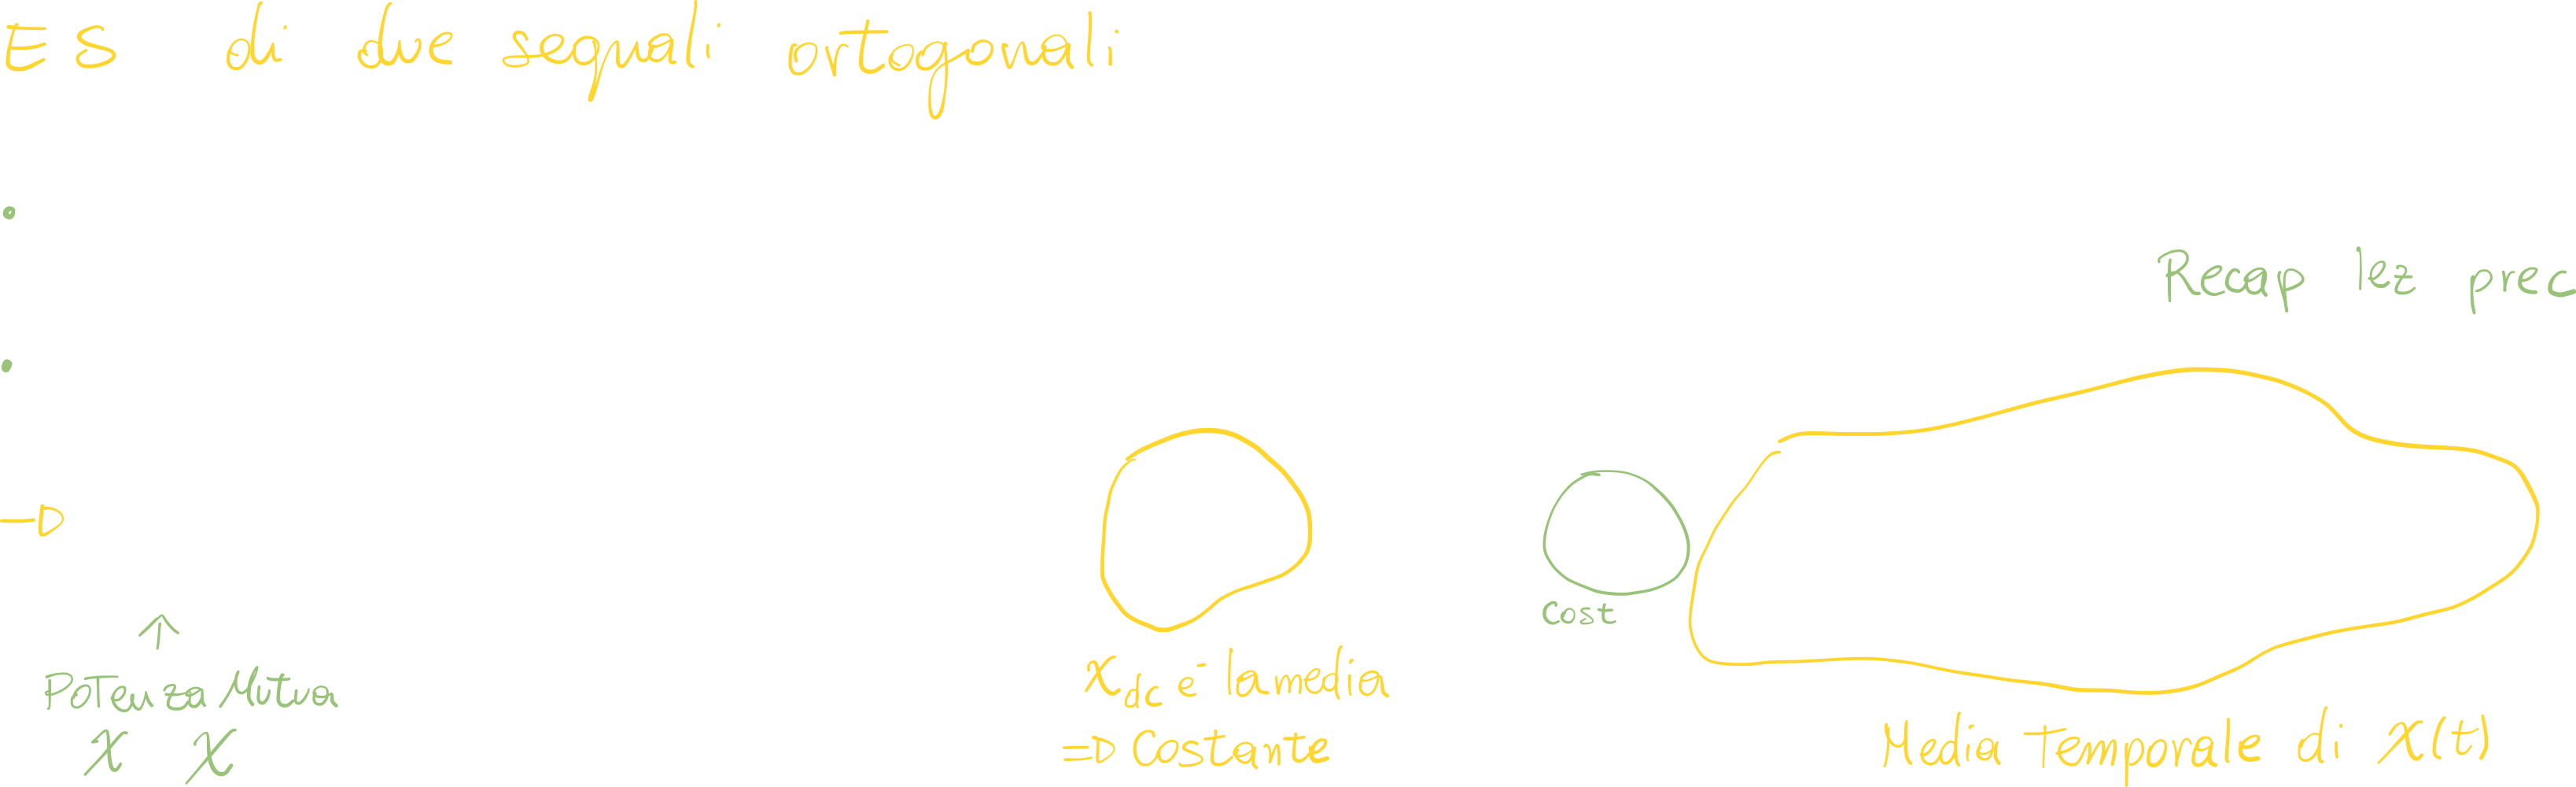 ES di due segnali ortogonali
Recap lez prec
Cost
Potenza Mutua
X X
X_dc è la media
=D Costante
Media Temporale di X(t)